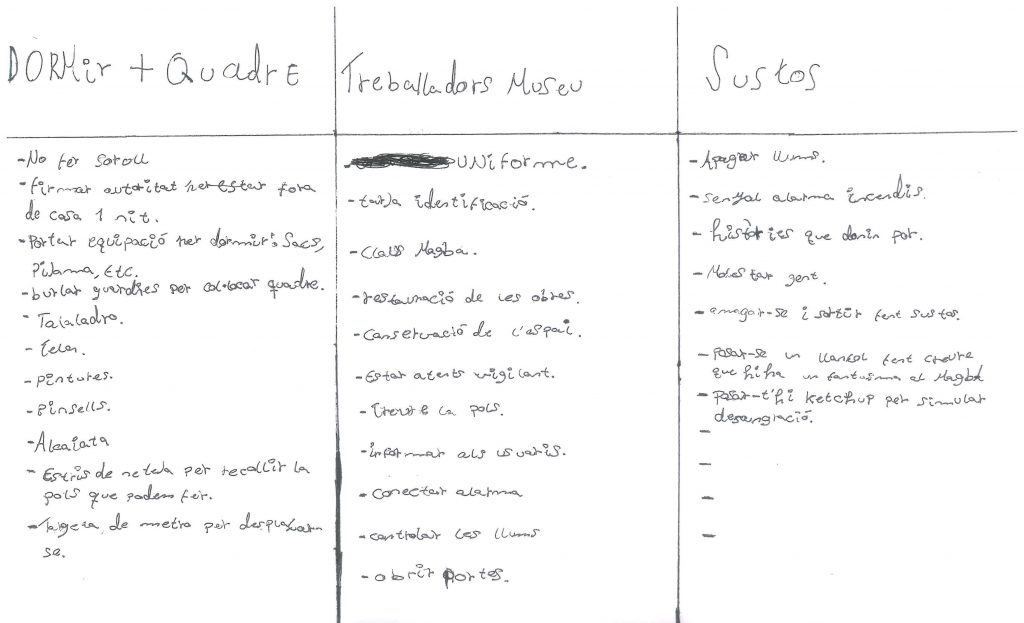 DORMir + QuadrE
Treballadors Museu
Sustos
-No fer soroll
-firmar autoritat per estar fora
de casa 1 nit.
-Portar equipació per dormir: Sacs,
Pijama, Etc.
-burlar guardies per col·locar quadre.
-Taialadro.
-Teles.
-pintures.
-Pinsells.
-Alcaiata
-Estris de neteja per recollir la
pols que podem fer.
-Targeta de metro per desplaçar
se.
UNiforme.
-tarja identificació.
-Claus Magba.
-restauració de les obres.
-Conservació de l'espai.
-Estar atents vigilant.
-treure la pols.
-informar als usuaris.
-conectar alarma
-controlar les llums
-obrir portes.
-Apagar llums.
-senyal alarma incendis.
-històries que donin por.
-Molestar gent.
-amagar-se i sortir fent sustos.
-Posar-se un llançol fent creure
que hi ha un fantasma al Magba
-Posar-t'hi ketchup per simular
desangració.
-
-
-
-